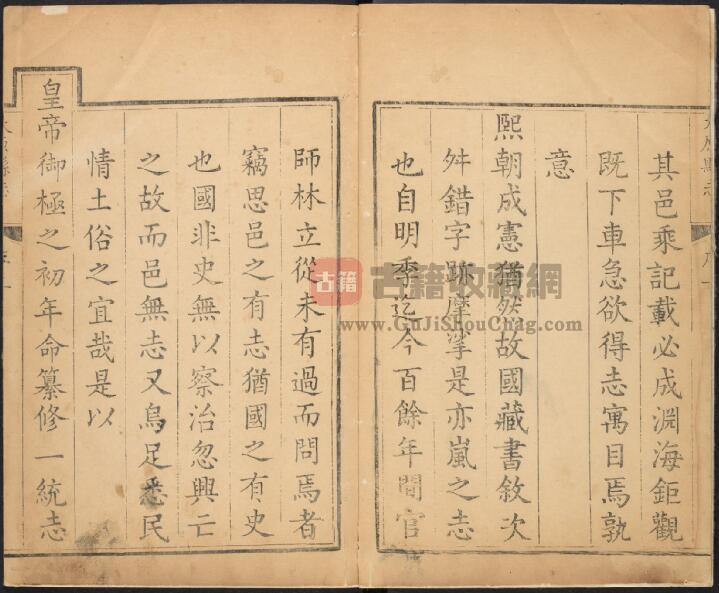 其邑乘記載必成淵海鉅觀
既下車急欲得志寓目焉孰
意
熙朝成憲猶然故國藏書敘次
舛錯字跡摩挲是亦嵐之志
也自明季迄今百餘年間官
師林立從未有過而問焉者
竊思邑之有志猶國之有史
也國非史無以察治忽興亡
之故而邑無志又烏足悉民
情土俗之宜哉是以
皇帝御極之初年命纂修一統志
古籍
古籍收藏網
www.GuJiShouChag.com